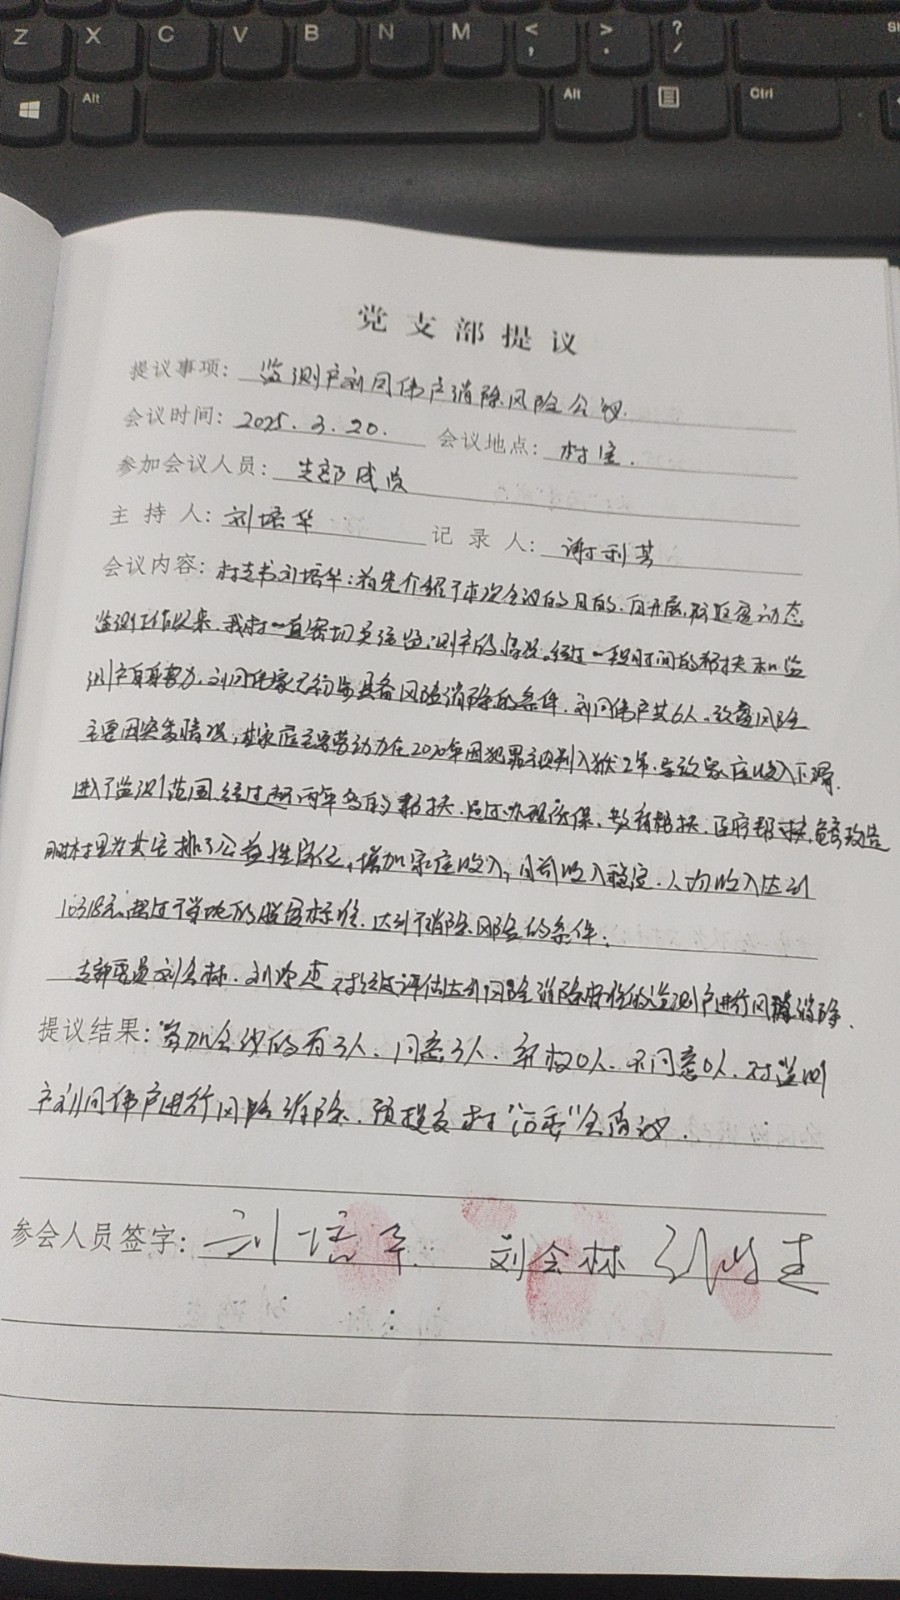 Z X C V B N M < , > . ? /
Alt Alt Ctrl
党支部提议
提议事项：监测户刘同伟户消除风险会议.
会议时间：2025.3.20. 会议地点：村室.
参加会议人员：支部成员
主持人：刘培华 记录人：谢利芳
会议内容：村支书刘培华：首先介绍了本次会议的目的.自开展防返贫动态
监测工作以来，我村一直密切关注监测户的情况。经过一段时间的帮扶和监
测户自身努力，刘同伟家已初步具备风险消除的条件.刘同伟户共6人，致贫风险
主要因突发情况，其家庭主要劳动力在2020年因犯罪被判入狱2年.导致家庭收入下滑.
进入了监测范围.经过两年多的帮扶.通过办理低保、教育帮扶、
同时村里为其安排了公益性岗位，增加家庭收入，目前收入稳定.人均收入达到
10318元，超过了当地的脱贫标准.达到了消除风险的条件；
支部委员刘会林、对经过评估达到风险消除的监测户进行风险消除.
提议结果：参加会议的有3人、同意3人、弃权0人、不同意0人.对监测
户刘同伟户进行风险消除.须提交村“两委”会商议.
参会人员签字：刘培华 刘会林